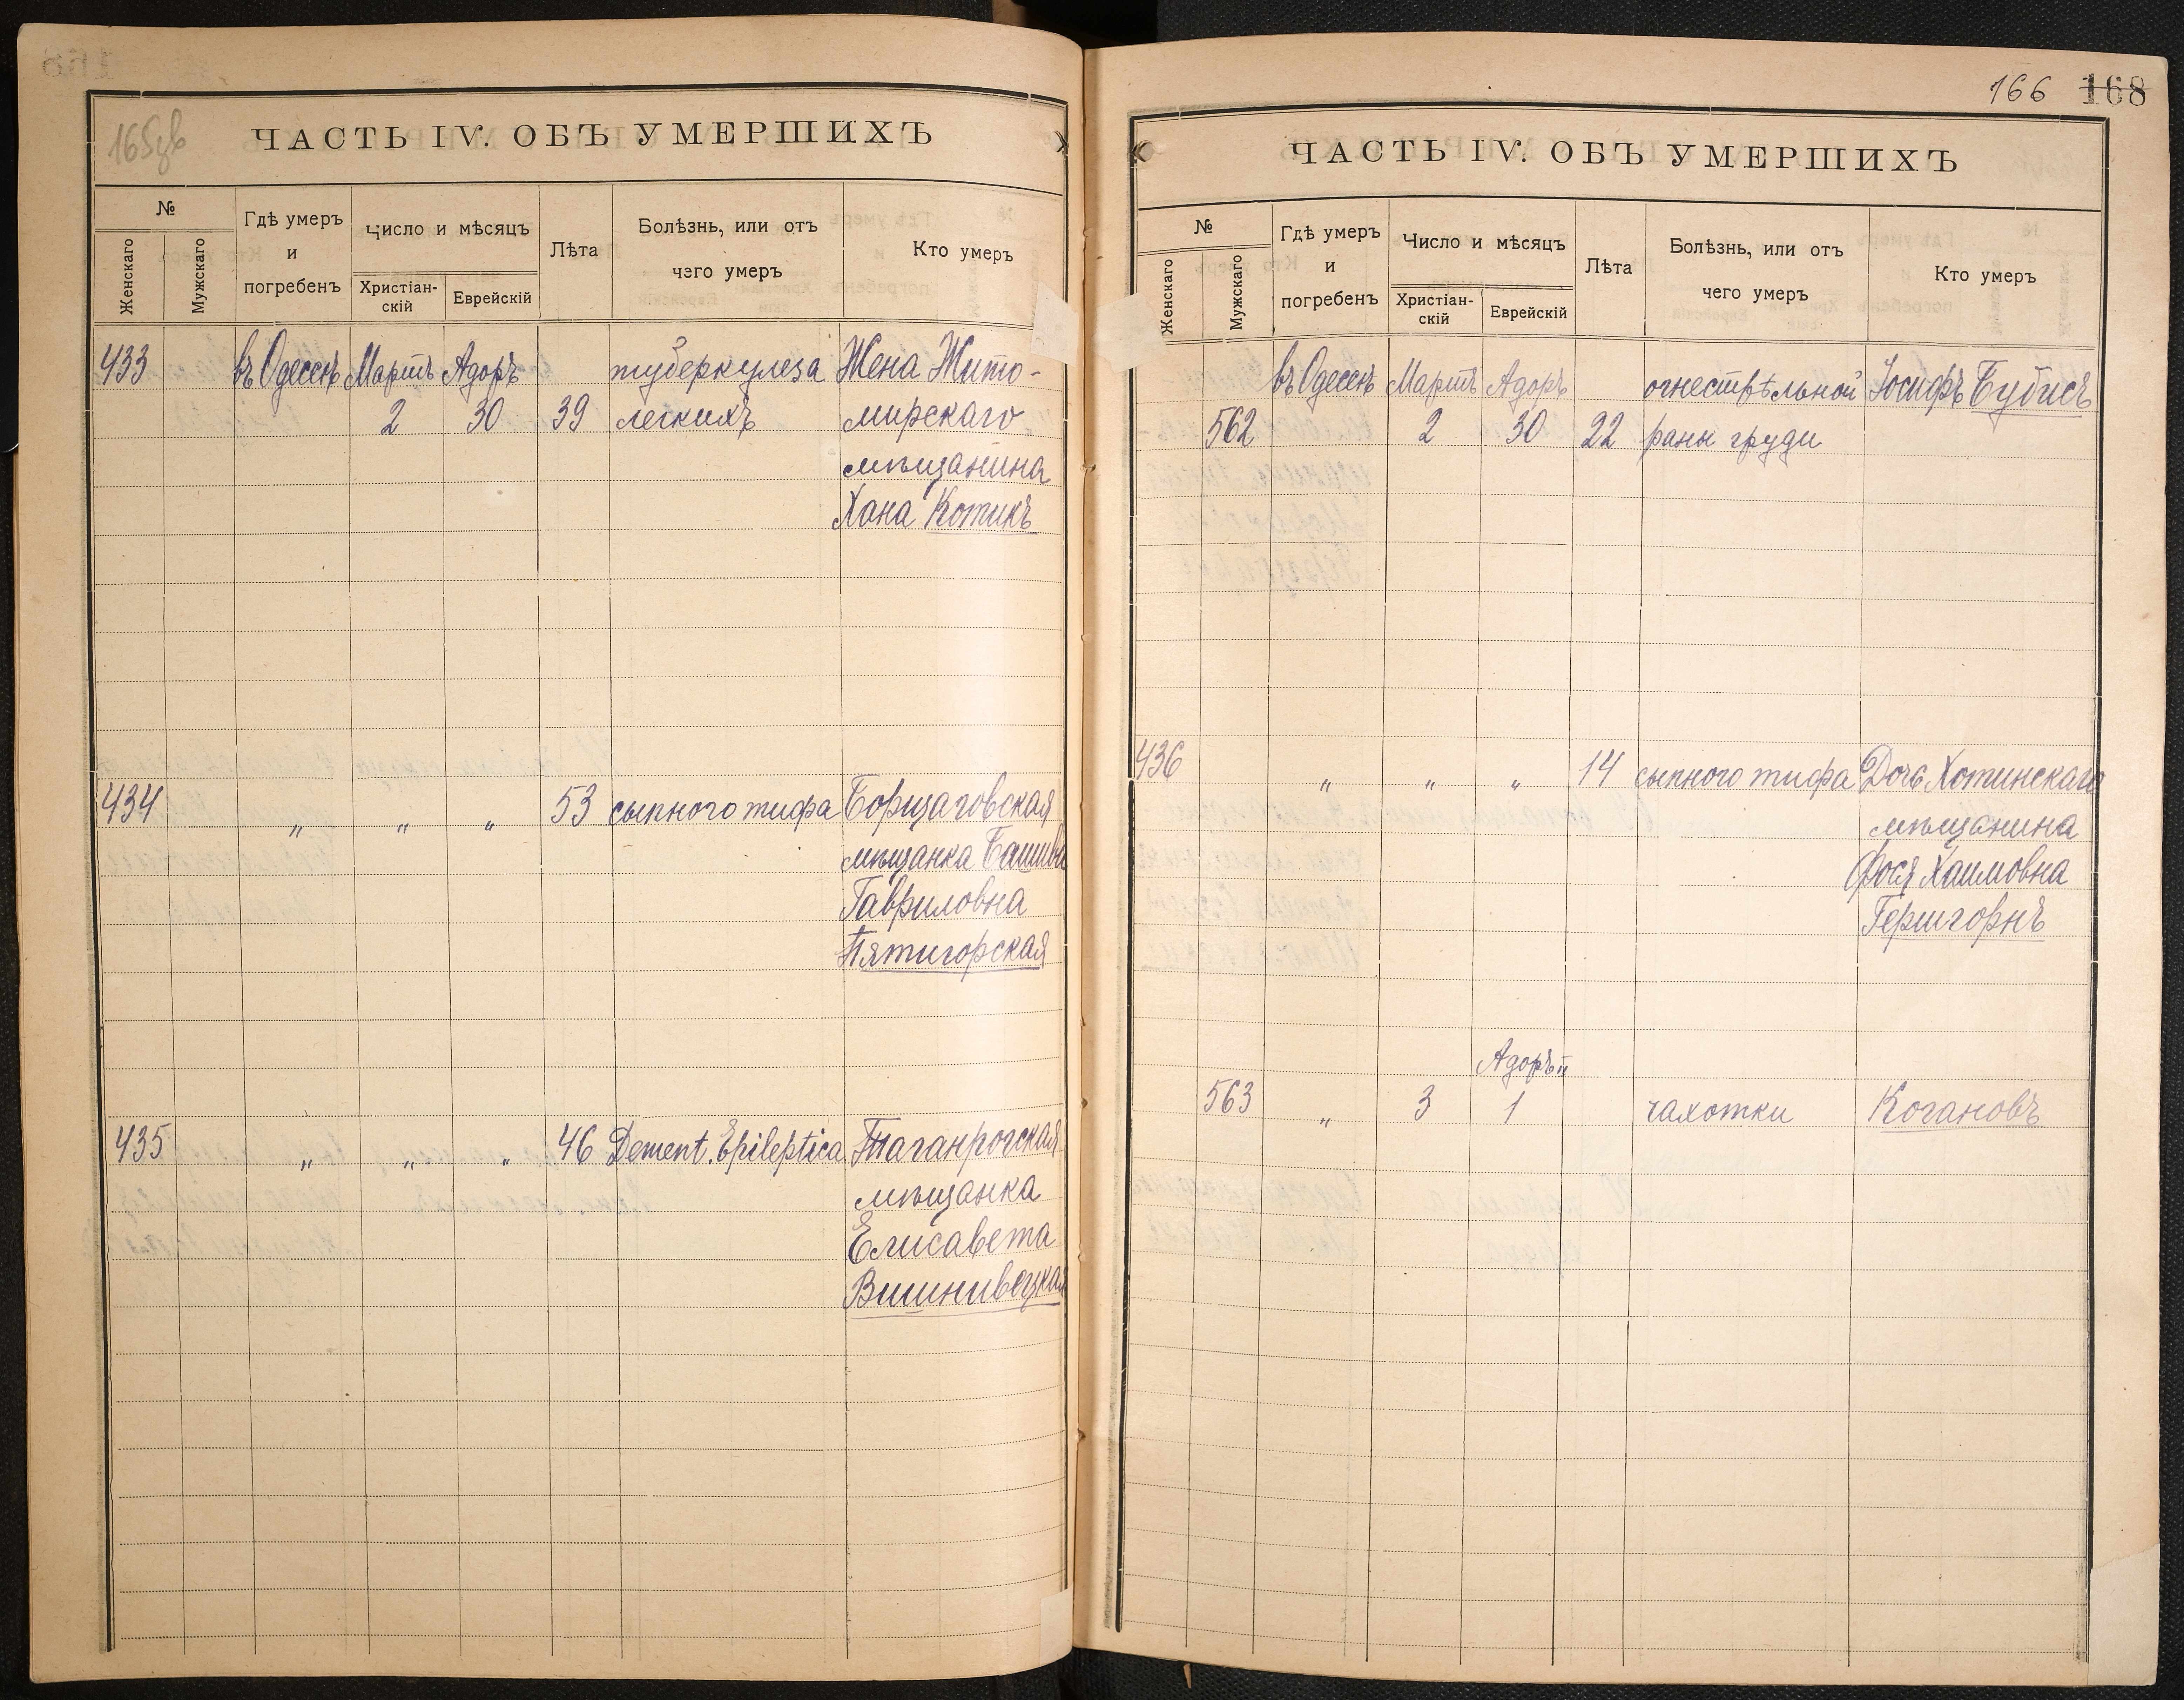 165об
ЧАСТЬ IV. ОБЪ УМЕРШИХЪ
№
Женскаго
Мужскаго
Гдѣ умеръ
и
погребенъ
Число и мѣсяцъ
Христіан-
скій
Еврейскій
Лѣта
Болѣзнь, или отъ
чего умеръ
Кто умеръ
433 въ Одессѣ Мартъ Адоръ туберкулеза Жена Жито-
2 30 39 легкихъ мирскаго
мѣщанина
Хана Котикъ
434 „ „ „ 53 сыпного тифа Борщаговская
мѣщанка Башива
Гавриловна
Пятигорская
435 „ „ „ 46 Dement. Epileptica Таганрогская
мѣщанка
Елисавета
Вишнивецкая
166 168
ЧАСТЬ IV. ОБЪ УМЕРШИХЪ
№
Женскаго
Мужскаго
Гдѣ умеръ
и
погребенъ
Число и мѣсяцъ
Христіан-
скій
Еврейскій
Лѣта
Болѣзнь, или отъ
чего умеръ
Кто умеръ
въ Одессѣ Мартъ Адоръ огнестрѣльной Іосифъ Бубисъ
562 2 30 22 раны груди
436 „ „ „ 14 сыпного тифа Дочь Хотинскаго
мѣщанина
Фося Хаимовна
Гершгорнъ
Адоръ II
563 „ 3 1 чахотки Когановъ